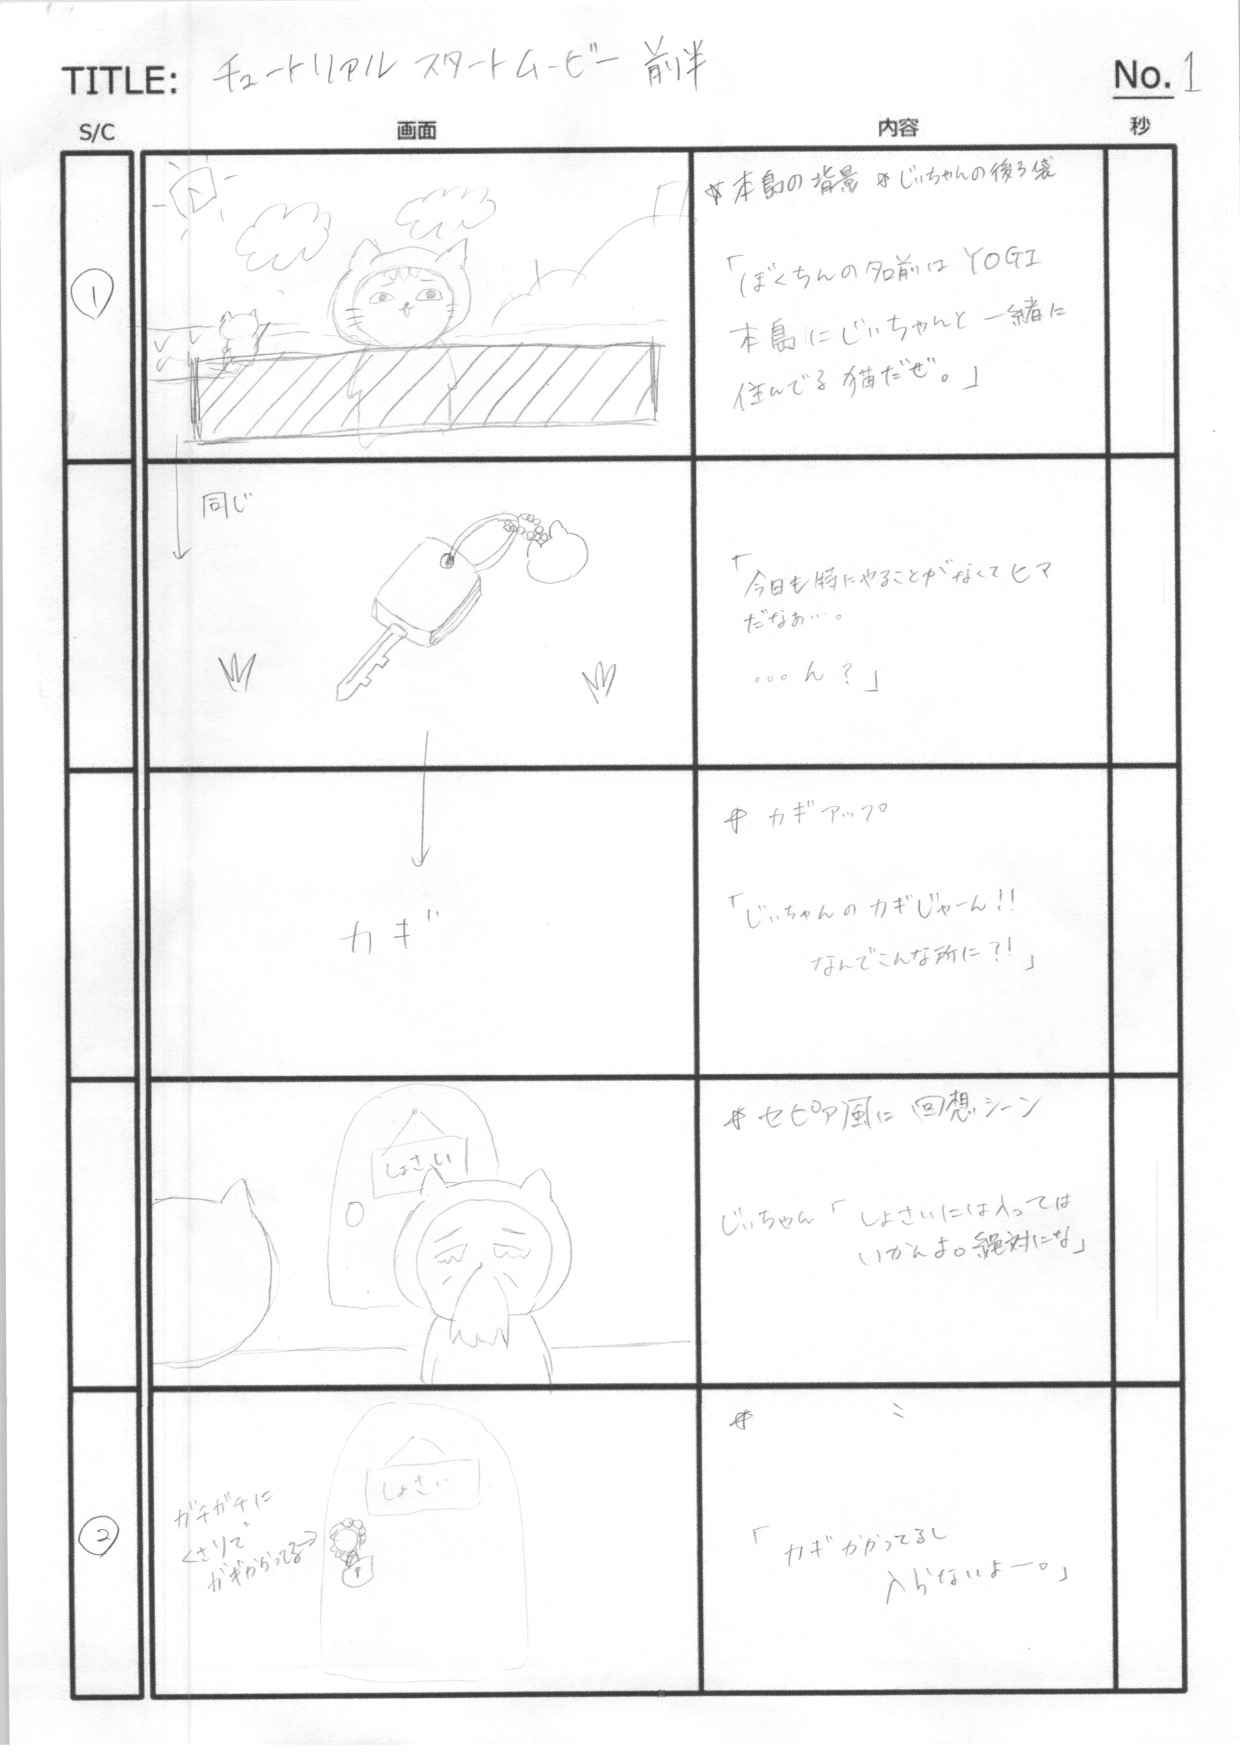 TITLE: チュートリアル スタートムービー 前半
No. 1
S/C 画面 内容 秒
①
*本島の背景 *じぃちゃんの後ろ袋
「ぼくちんの名前は YOGI
本島にじぃちゃんと一緒に
住んでる猫だぜ。」
同じ
「今日も特にやることがなくてヒマ
だなぁ…。
…ん?」
カギ
* カギアップ
「じぃちゃんのカギじゃーん!!
なんでこんな所に?!」
しょさい
* セピア風に 回想シーン
じぃちゃん「しょさいには入っては
いかんよ。絶対にな」
②
しょさい
ガチガチに
くさりで
カギかかってる→
* 〃
「カギかかってるし
入らないよー。」